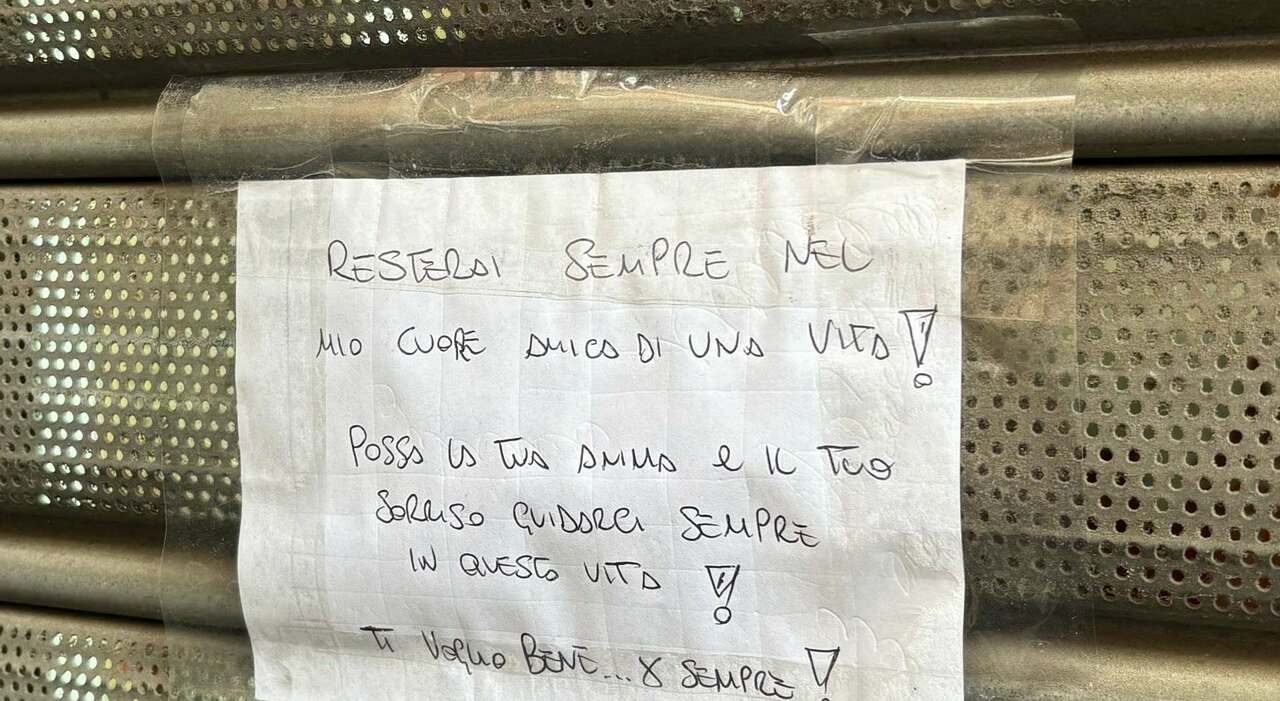 RESTERAI SEMPRE NEL
MIO CUORE AMICA DI UNA VITA!
POSSA LA TUA ANIMA e IL TUO
SORRISO GUIDARCI SEMPRE
IN QUESTA VITA!
TI VOGLIO BENE... X SEMPRE!